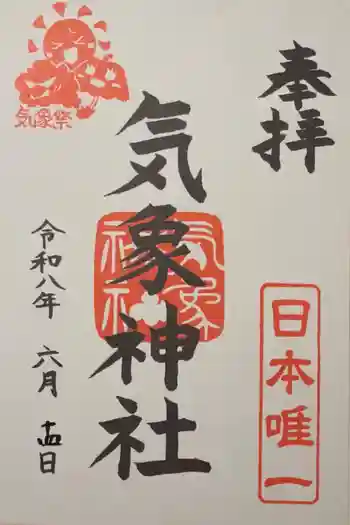 奉拝
日本唯一
気象神社
気象神社
気象祭
令和八年 六月 十四日